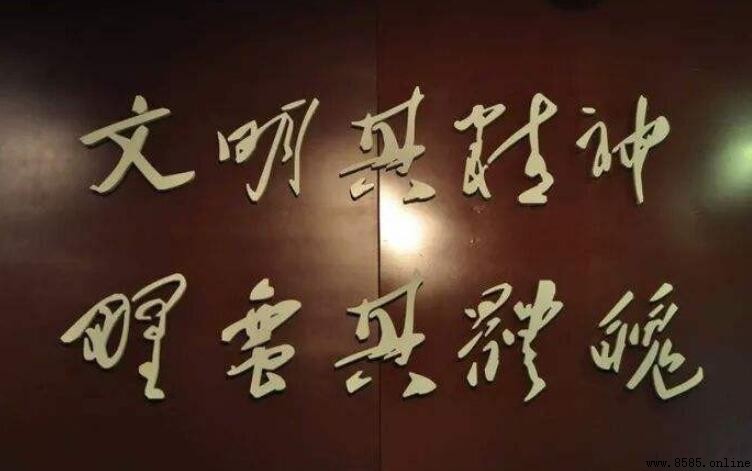 文明其精神
野蛮其體魄
www.8585.online